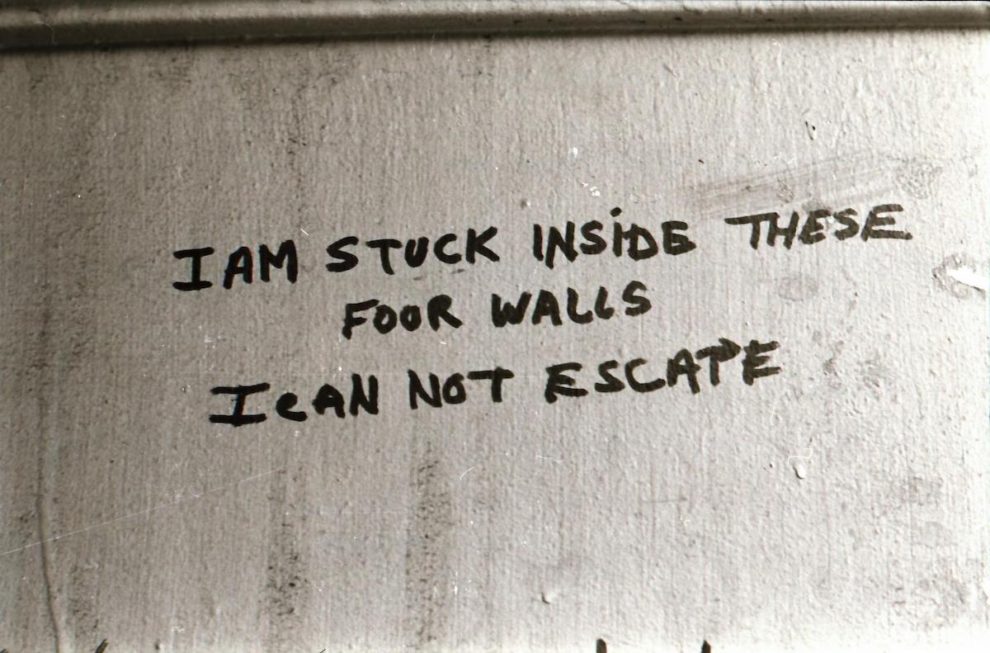 I AM STUCK INSiDE THESE
FOOR WALLS
I cAN NOT ESCAPE